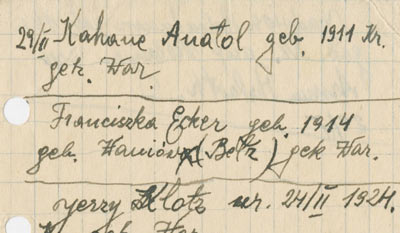 29/II Kahane Anatol geb. 1911 Kr.
gek. War.
Franciszka Ecker geb. 1914
geb. (Beltz) gek War.
Jerzy Klotz ur. 24/II 1924.
War.